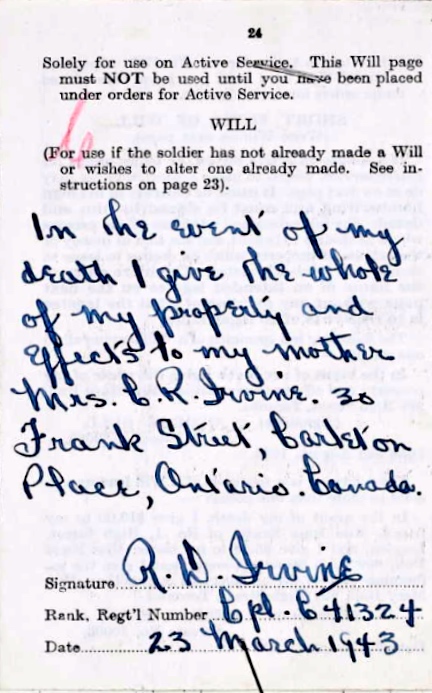 24
Solely for use on Active Service. This Will page
must NOT be used until you have been placed
under orders for Active Service.
WILL
(For use if the soldier has not already made a Will
or wishes to alter one already made. See in-
structions on page 23).
In the event of my
death I give the whole
of my property and
effects to my mother
Mrs. C. R. Irvine. 30
Frank Street, Carleton
Place, Ontario, Canada.
Signature R. D. Irvine
Rank, Regt'l Number Cpl. C41324
Date 23 March 1943